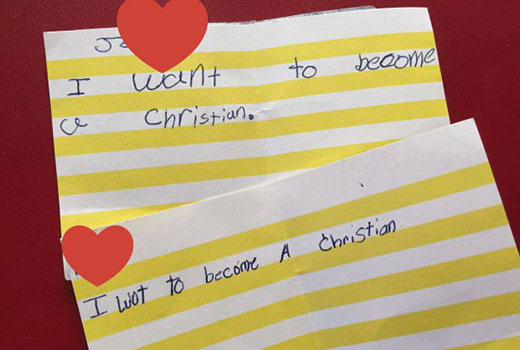 I want to become
a Christian.
I wot to become A Christian